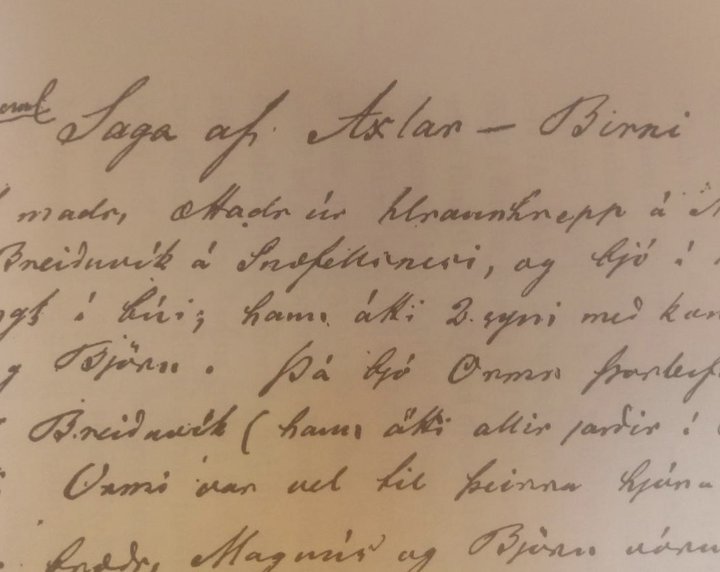 Saga af Axlar-Birni
madr, ættadr úr Hraunhrepp á
Breiðuvík á Snæfellsnesi, og bjó í
í búi; hann átti 2 syni með
Björn. Þá bjó Ormr
Breiðuvík (hann átti allir jarðir í
Ormi var vel til þeirra hjóna
brædr, Magnús og Björn vóru